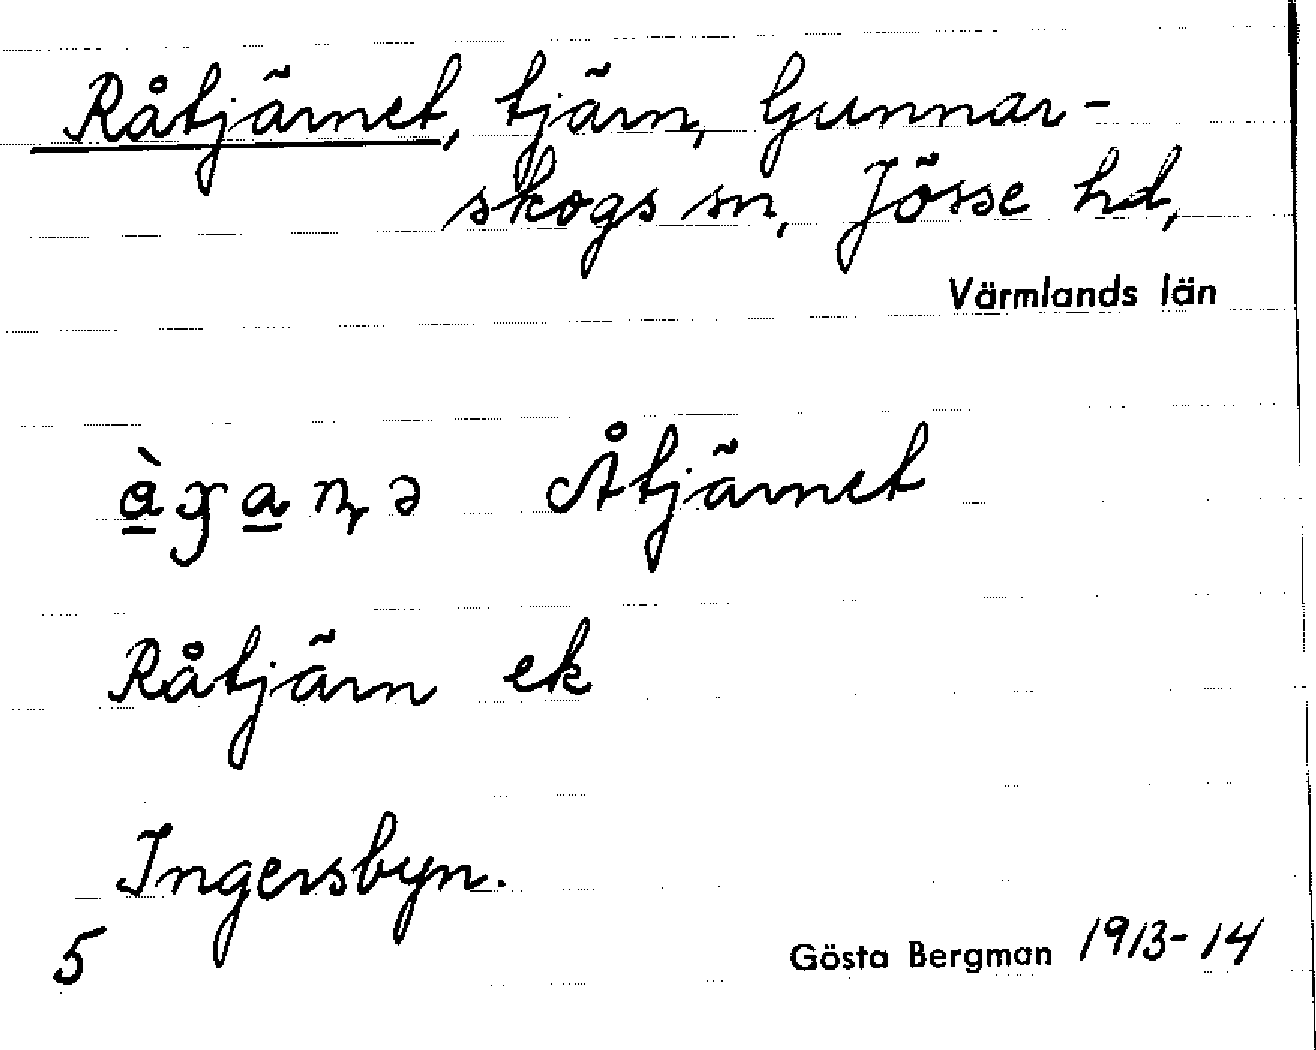 Råtjärnet, tjärn, Gunnar-
skogs sn, Jösse hd,
Värmlands län
Åtjärnet
Råtjärn ek
Ingersbyn.
5 Gösta Bergman 1913-14